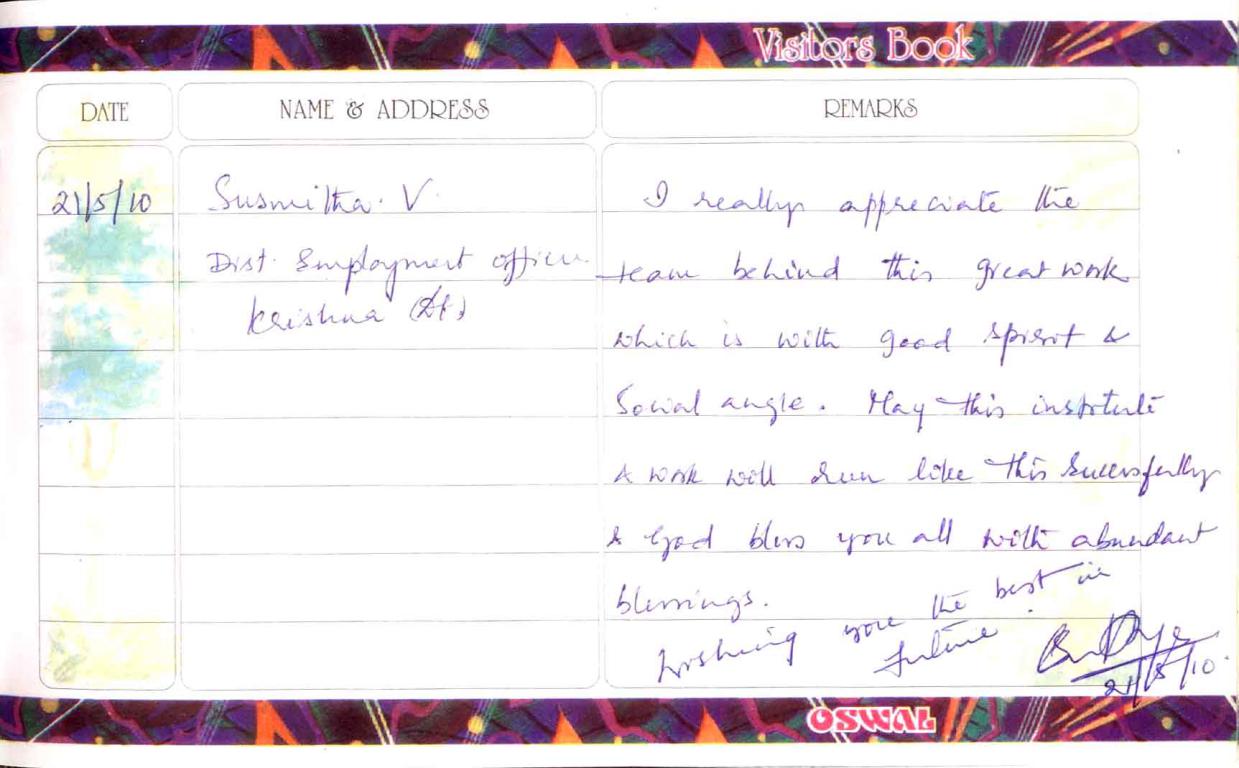 Visitors Book
DATE
NAME & ADDRESS
REMARKS
21/5/10
Susmitha. V
Dist. Employment officer
Krishna (Dt)
I really appreciate the
team behind this great work
which is with good spirit &
Social angle. May this institute
& work will run like this Sucessfully
& God bless you all with abundant
blessings.
Wishing you the best in
future.
21/5/10.
OSWAL